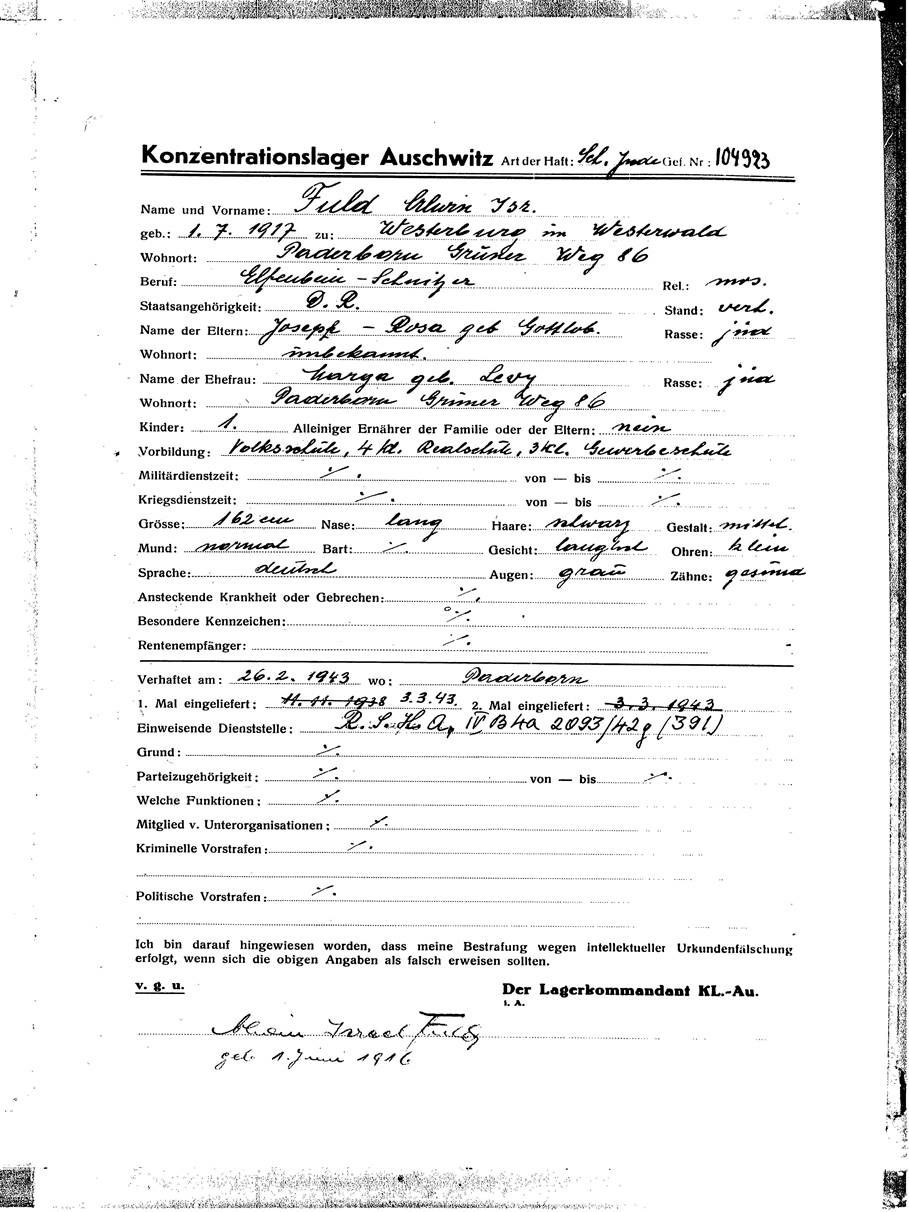 Konzentrationslager Auschwitz Art der Haft: Sch. Jude Gef. Nr.: 104923
Name und Vorname: Fuld Erwin Isr.
geb.: 1. 7. 1917 zu: Westerburg im Westerwald
Wohnort: Paderborn Grüner Weg 86
Beruf: Elfenbein-Schnitzer Rel.: mos.
Staatsangehörigkeit: D. R. Stand: verh.
Name der Eltern: Joseph – Rosa geb Gottlob. Rasse: jüd
Wohnort: unbekannt.
Name der Ehefrau: Marga geb. Levy Rasse: jüd
Wohnort: Paderborn Grüner Weg 86
Kinder: 1. Alleiniger Ernährer der Familie oder der Eltern: nein
Vorbildung: Volksschule, 4 Kl. Realschule, 3 Kl. Gewerbeschule
Militärdienstzeit: ./. von — bis ./.
Kriegsdienstzeit: ./. von — bis ./.
Grösse: 162 cm Nase: lang Haare: schwarz Gestalt: mittel.
Mund: normal Bart: ./. Gesicht: länglich Ohren: klein
Sprache: deutsch Augen: grau Zähne: gesund
Ansteckende Krankheit oder Gebrechen: ./.
Besondere Kennzeichen: ./.
Rentenempfänger: ./.
Verhaftet am: 26. 2. 1943 wo: Paderborn
1. Mal eingeliefert: 11. 11. 1938 3. 3. 43. 2. Mal eingeliefert: 3. 3. 1943
Einweisende Dienststelle: R. S. H. A., IV B4a 2093/42g (391)
Grund: ./.
Parteizugehörigkeit: ./. von — bis ./.
Welche Funktionen: ./.
Mitglied v. Unterorganisationen: ./.
Kriminelle Vorstrafen: ./.
Politische Vorstrafen: ./.
Ich bin darauf hingewiesen worden, dass meine Bestrafung wegen intellektueller Urkundenfälschung
erfolgt, wenn sich die obigen Angaben als falsch erweisen sollten.
v. g. u. Der Lagerkommandant KL.-Au.
i. A.
Israel Fuld
geb. 1. Juni 1916